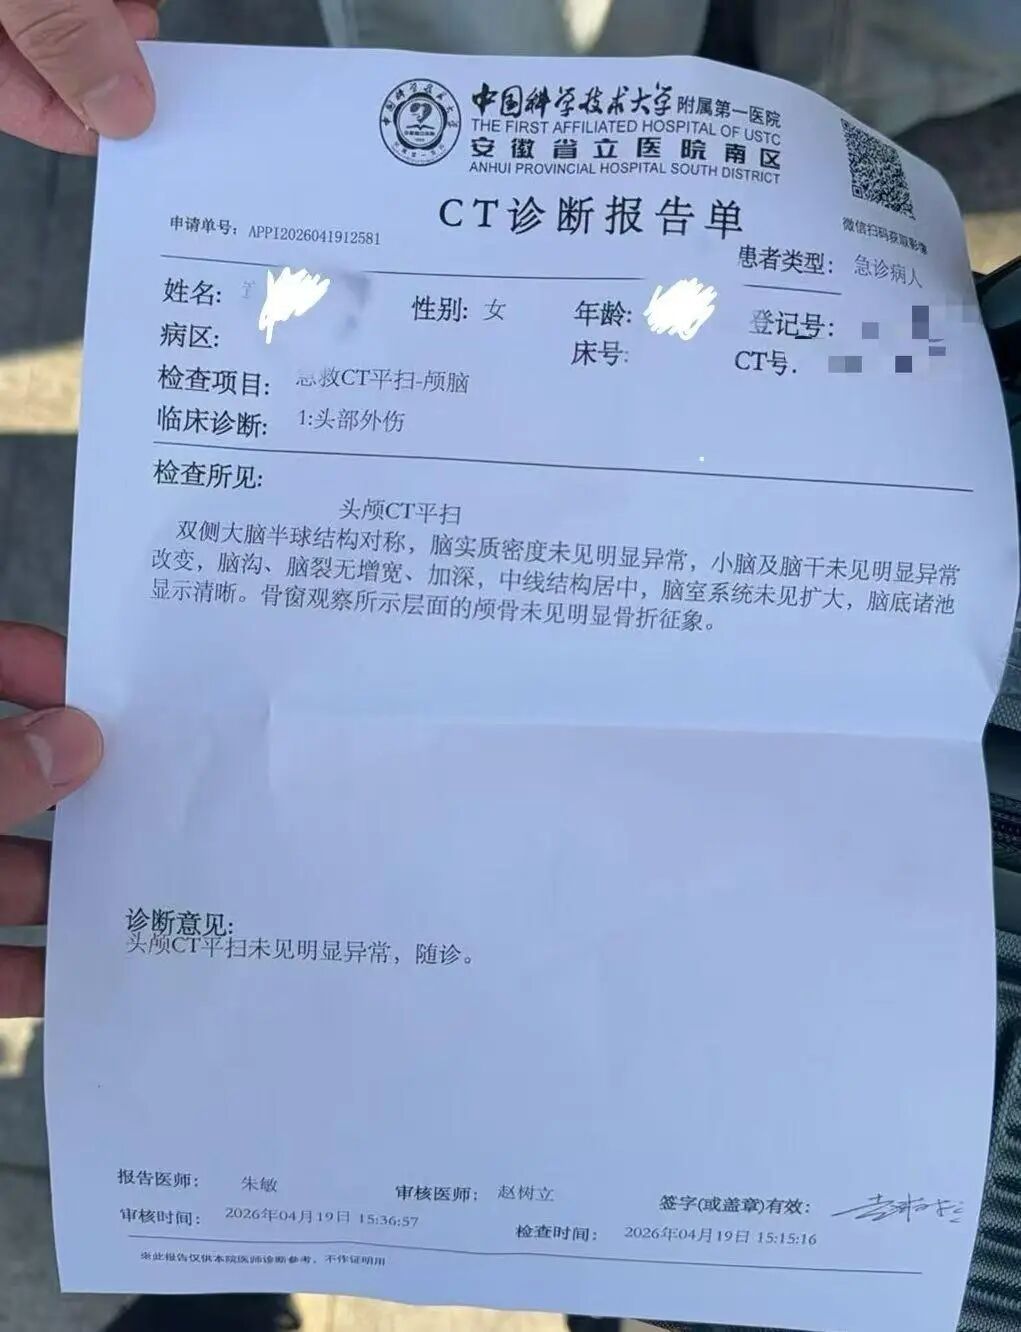 中国科学技术大学附属第一医院
THE FIRST AFFILIATED HOSPITAL OF USTC
安徽省立医院南区
ANHUI PROVINCIAL HOSPITAL SOUTH DISTRICT
微信扫码获取影像
CT诊断报告单
申请单号：APPI2026041912581
患者类型：急诊病人
姓名： 性别：女 年龄： 登记号：
病区： 床号： CT号.
检查项目：急救CT平扫-颅脑
临床诊断：1:头部外伤
检查所见：
头颅CT平扫
双侧大脑半球结构对称，脑实质密度未见明显异常，小脑及脑干未见明显异常
改变，脑沟、脑裂无增宽、加深，中线结构居中，脑室系统未见扩大，脑底诸池
显示清晰。骨窗观察所示层面的颅骨未见明显骨折征象。
诊断意见：
头颅CT平扫未见明显异常，随诊。
报告医师： 朱敏 审核医师： 赵树立 签字(或盖章)有效：
审核时间： 2026年04月19日 15:36:57 检查时间： 2026年04月19日 15:15:16
※此报告仅供本院医师诊断参考，不作证明用